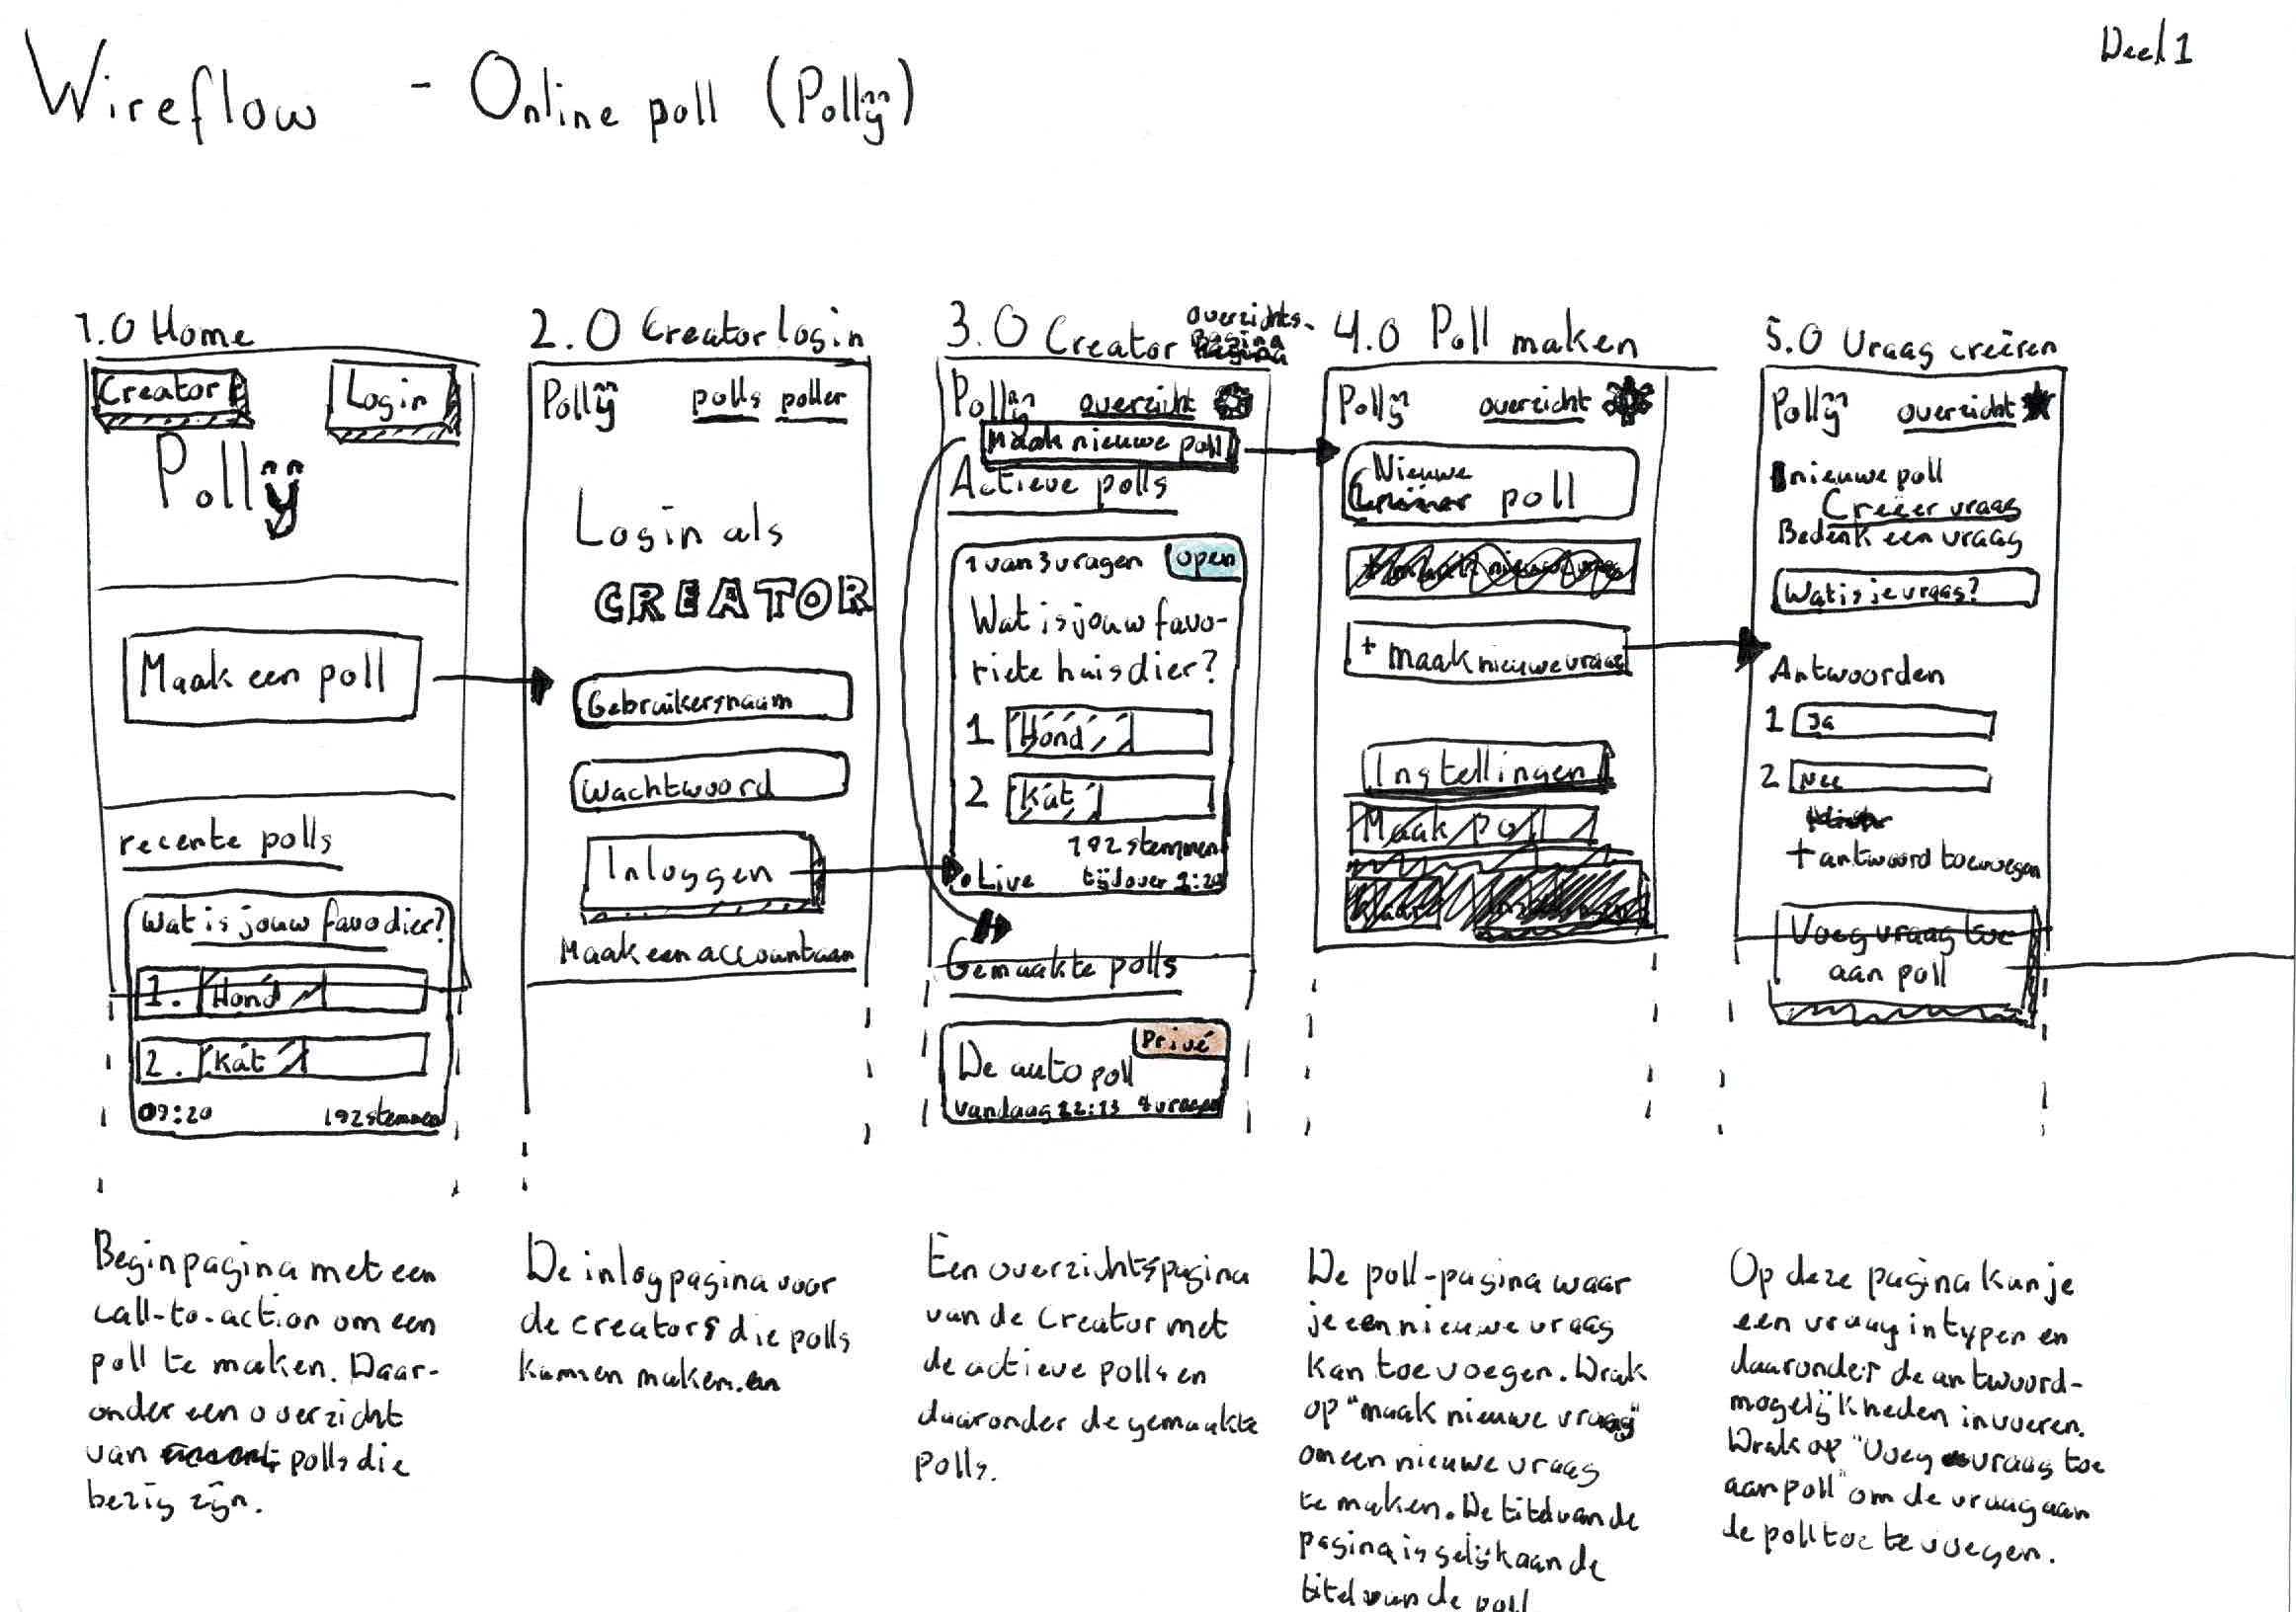 Wireflow - Online poll (Pollÿ)
Deel 1
1.0 Home
Creator
Login
Pollÿ
Maak een poll
recente polls
Wat is jouw favo dier?
1. Hond
2. Kat
09:20 192 stemmen
Beginpagina met een
call-to-action om een
poll te maken. Daar-
onder een overzicht
van polls die
bezig zijn.
2.0 Creator login
Pollÿ polls poller
Login als
CREATOR
Gebruikersnaam
Wachtwoord
Inloggen
Maak een account aan
De inlogpagina voor
de creators die polls
kunnen maken.
3.0 Creator overzichts-
pagina
Pollÿ overzicht
Maak nieuwe poll
Actieve polls
1 van 3 vragen open
Wat is jouw favo-
riete huisdier?
1 Hond
2 Kat
192 stemmen
Live tijd over 1:20
Gemaakte polls
Privé
De auto poll
vandaag 12:13 4 vragen
Een overzichtspagina
van de Creator met
de actieve polls en
daaronder de gemaakte
polls.
4.0 Poll maken
Pollÿ overzicht
Nieuwe
poll
+ maak nieuwe vraag
Instellingen
Maak poll
De poll-pagina waar
je een nieuwe vraag
kan toevoegen. Druk
op "maak nieuwe vraag"
om een nieuwe vraag
te maken. De titel van de
pagina is gelijk aan de
titel van de poll
5.0 Vraag creëren
Pollÿ overzicht
nieuwe poll
Creëer vraag
Bedenk een vraag
Wat is je vraag?
Antwoorden
1 Ja
2 Nee
+ antwoord toevoegen
Voeg vraag toe
aan poll
Op deze pagina kun je
een vraag in typen en
daaronder de antwoord-
mogelijkheden invoeren.
Druk op "Voeg vraag toe
aan poll" om de vraag aan
de poll toe te voegen.